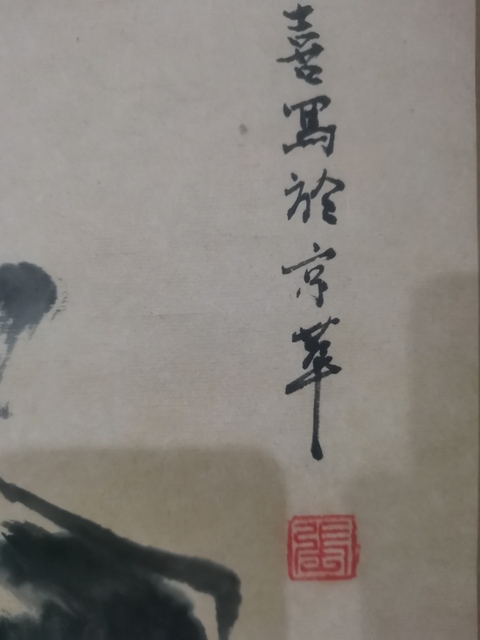 喜寫於京華